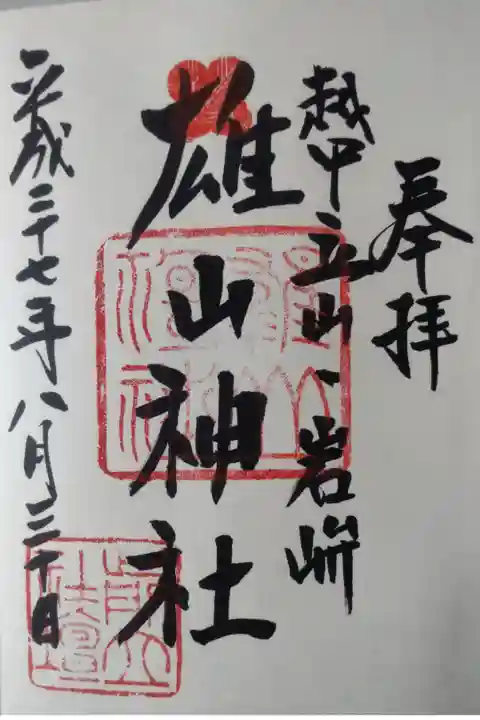 奉拝
越中立山岩峅
雄山神社
平成二十七年八月三十日